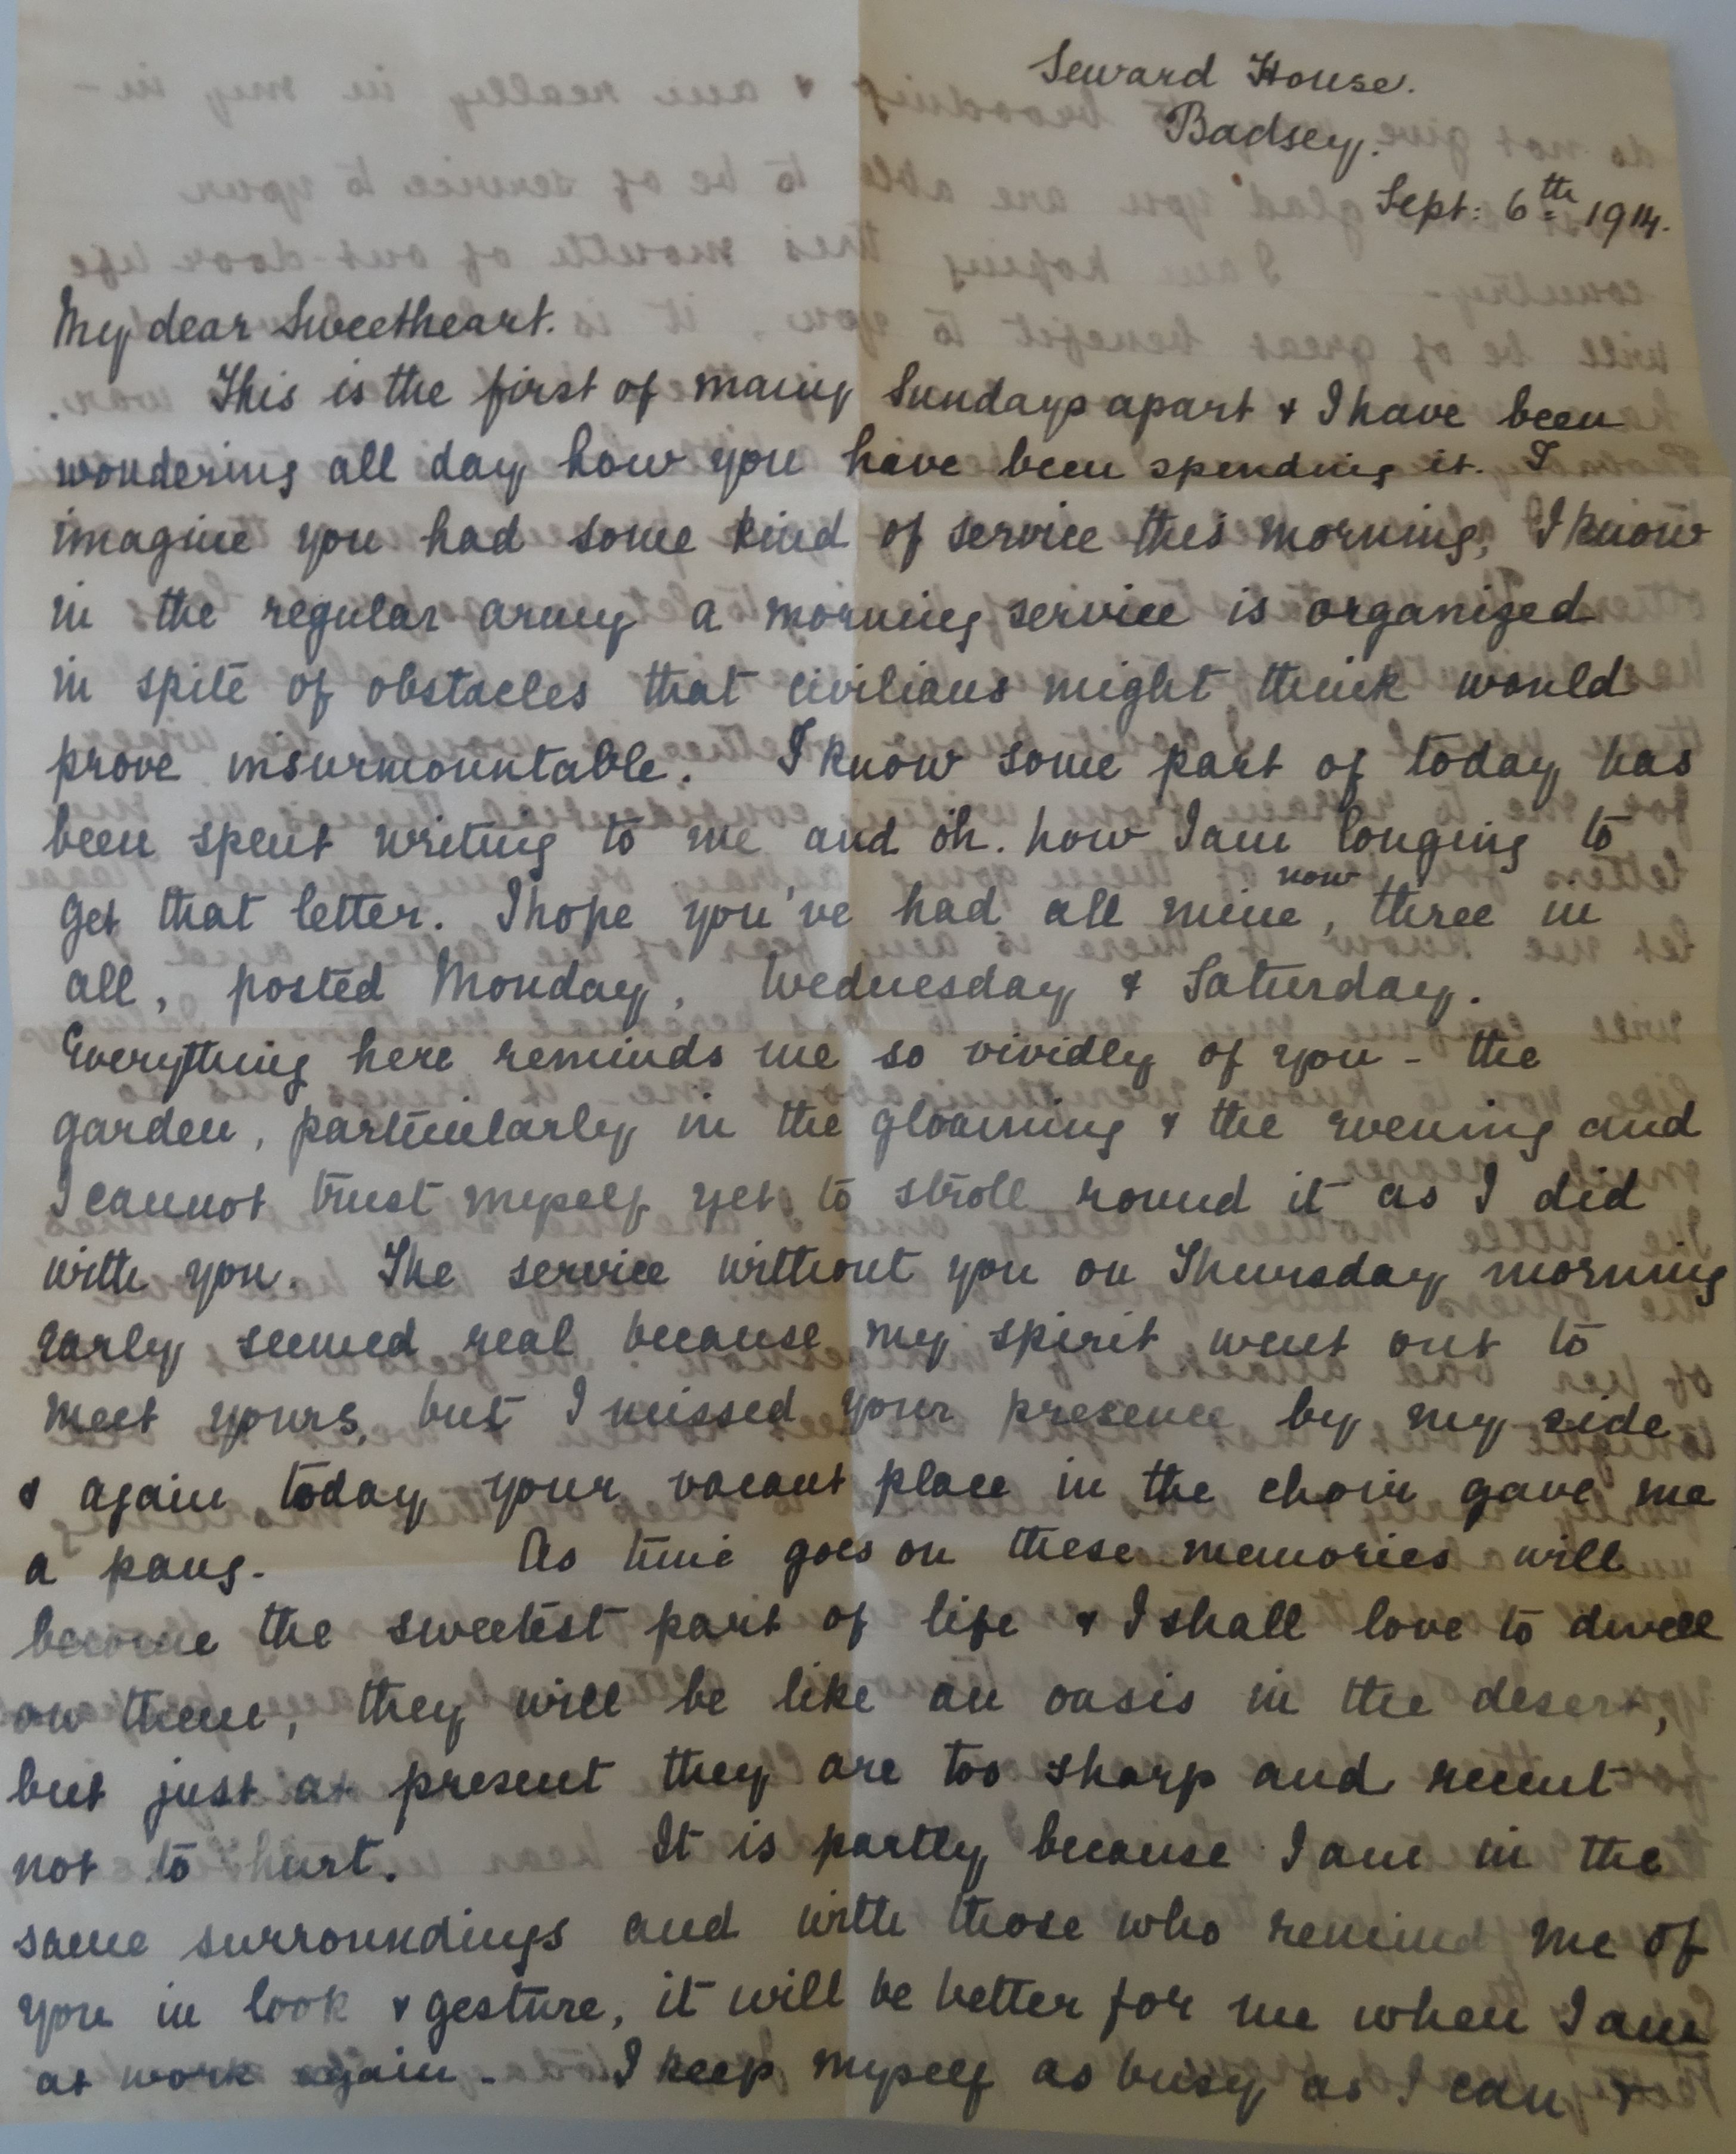 Seward House.
Badsey.
Sept: 6th 1914.
My dear Sweetheart.
This is the first of many Sundays apart & I have been
wondering all day how you have been spending it. I
imagine you had some kind of service this morning, I know
in the regular army a morning service is organized
in spite of obstacles that civilians might think would
prove insurmountable. I know some part of today has
been spent writing to me and oh. how I am longing to
now
get that letter. I hope you've had all mine, three in
all, posted Monday, Wednesday & Saturday.
Everything here reminds me so vividly of you - the
garden, particularly in the gloaming & the evening and
I cannot trust myself yet to stroll round it as I did
with you. The service without you on Thursday morning
early seemed real because my spirit went out to
meet yours, but I missed your presence by my side
& again today your vacant place in the choir gave me
a pang. As time goes on these memories will
become the sweetest part of life & I shall love to dwell
on them, they will be like an oasis in the desert,
but just at present they are too sharp and recent
not to hurt. It is partly because I am in the
same surroundings and with those who remind me of
you in look & gesture, it will be better for me when I am
at work again - I keep myself as busy as I can &